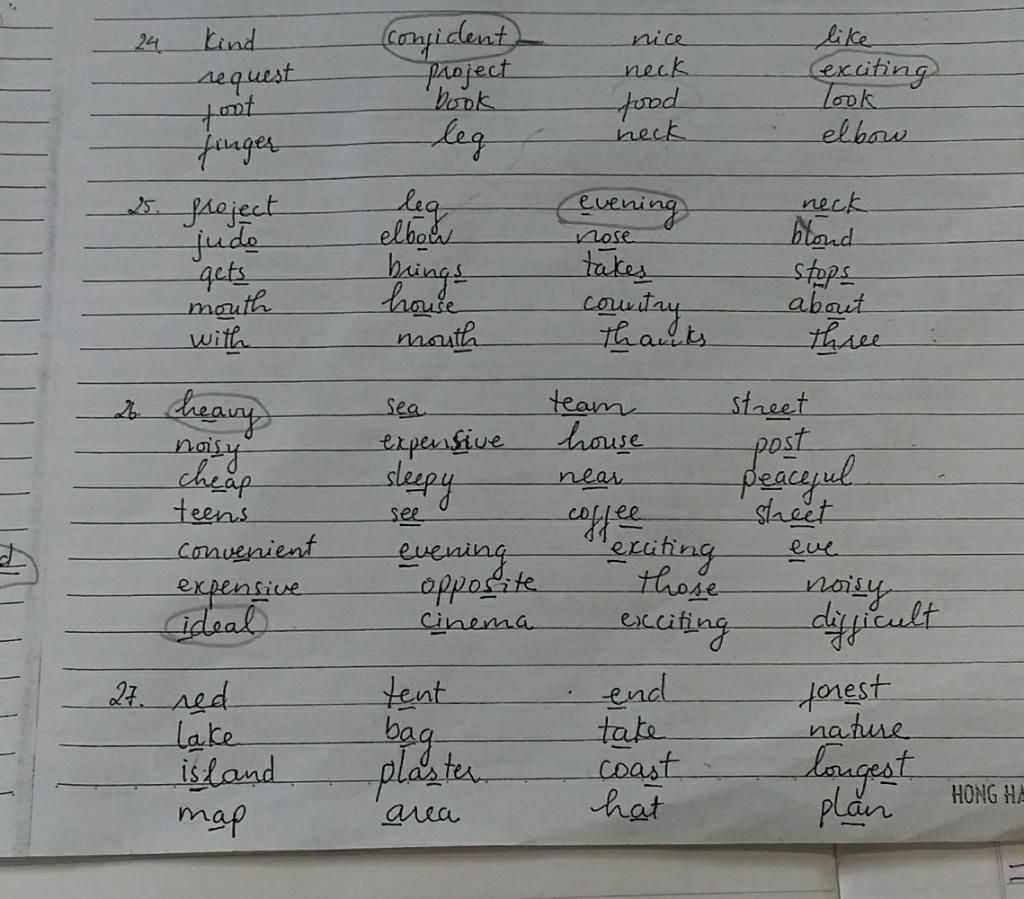 24. kind confident nice like
request project neck exciting
foot book food look
finger leg neck elbow
25. project leg evening neck
judo elbow nose blond
gets brings takes stops
mouth house country about
with mouth thanks three
26. heavy sea team street
noisy expensive house post
cheap sleepy near peaceful
teens see coffee street
convenient evening exciting eve
expensive opposite those noisy
ideal cinema exciting difficult
27. red tent end forest
lake bag take nature
island plaster coast longest
map area hat plan
HONG HA